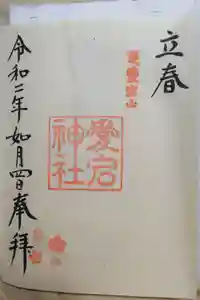 立春
愛宕神社
令和二年如月四日奉拝